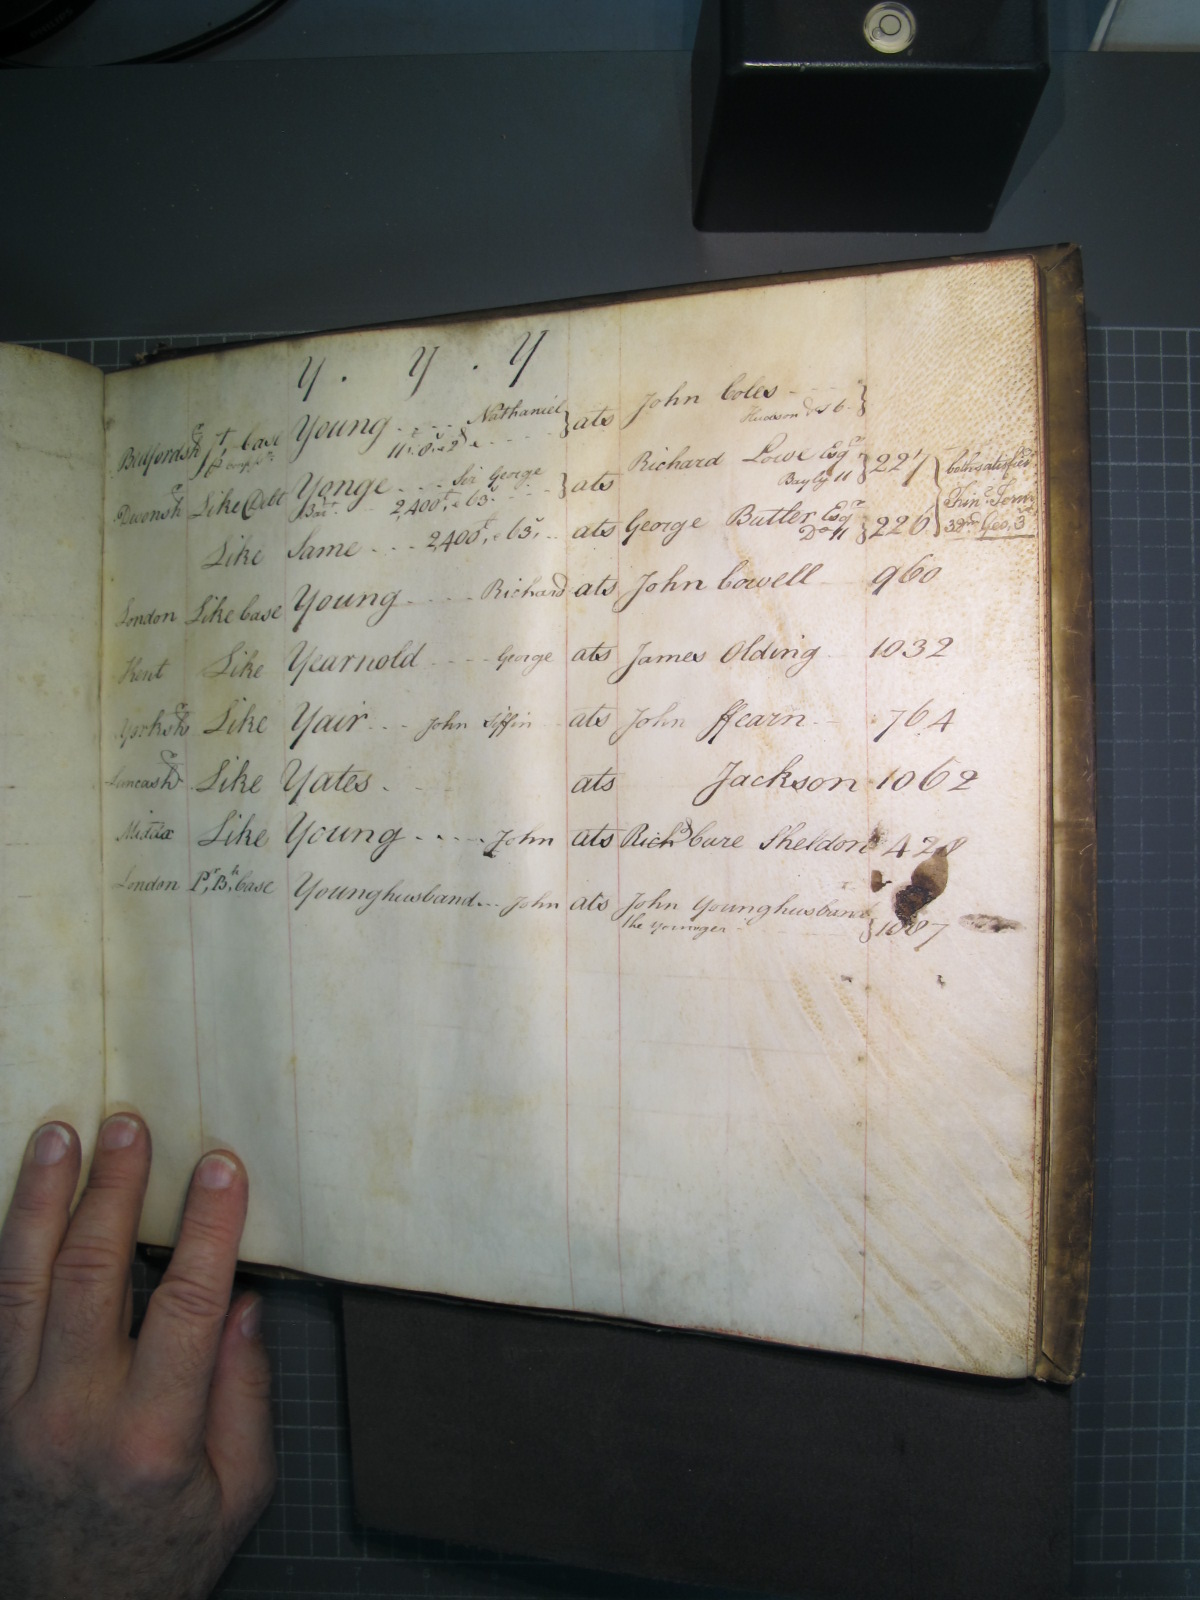 Y . Y . Y
Bedfordsh Jt. Case Young .... Nathaniel } ats John Coles ---- }
11£. 8s. 2d ----- Hudson
Devonsh Like Debt Yonge .... Sir George } ats Richard Lowe Esqr } 227 } both satisfied
Bart. 2,400£, & 63s Bayly 11
Like Same ... 2400£, & 63s, .. ats George Butler Esqr } 226 } Trin. Term
Do 11 32nd Geo. 3rd
London Like Case Young ..... Richard ats John Cowell 960
Kent Like Yearnold .... George ats James Olding 1032
Yorksh Like Yair ... John Siffin ats John ffearn -- 764
Lancash Like Yates . ats Jackson 1062
Middx Like Young ..... John ats Richd Care Sheldon 428
London Case Younghusband... John ats John Younghusband } 1087
the Younger